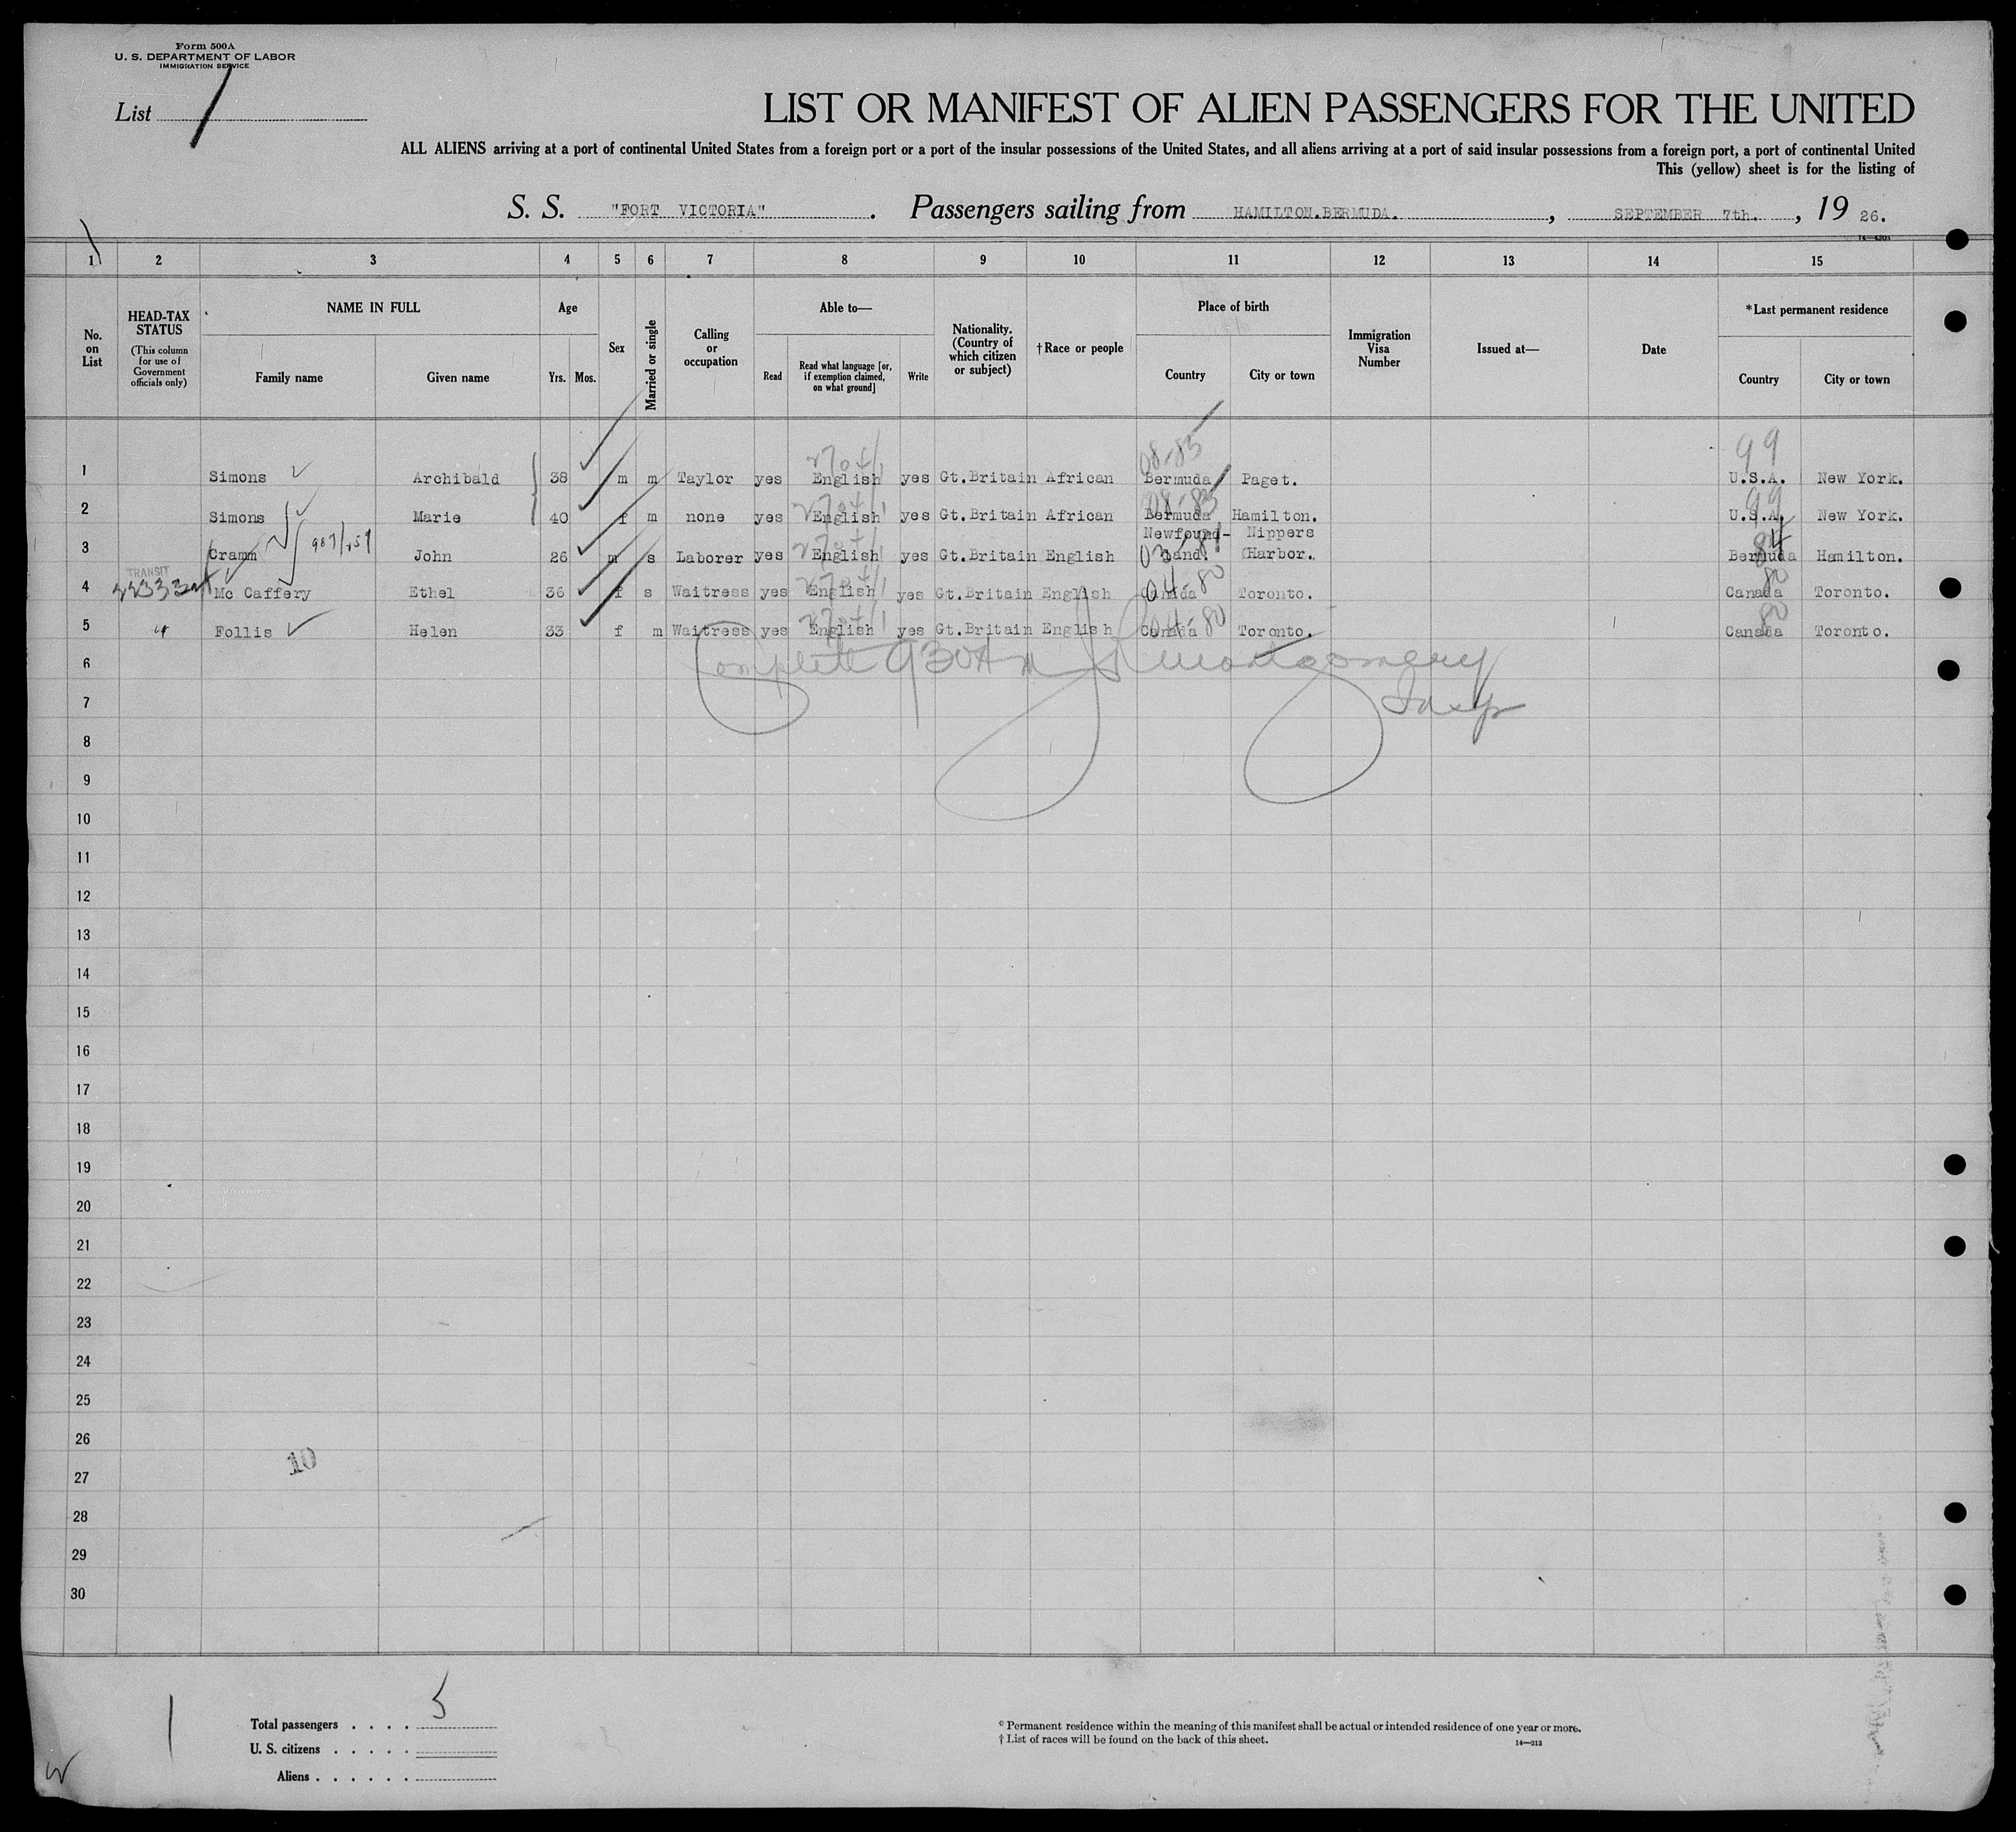 Form 500A
U. S. DEPARTMENT OF LABOR
IMMIGRATION SERVICE
List 1
LIST OR MANIFEST OF ALIEN PASSENGERS FOR THE UNITED
ALL ALIENS arriving at a port of continental United States from a foreign port or a port of the insular possessions of the United States, and all aliens arriving at a port of said insular possessions from a foreign port, a port of continental United
This (yellow) sheet is for the listing of
S. S. "FORT VICTORIA" . Passengers sailing from HAMILTON.BERMUDA. , SEPTEMBER 7th. , 19 26.
1 2 3 4 5 6 7 8 9 10 11 12 13 14 15
No. on List
HEAD-TAX STATUS
(This column for use of Government officials only)
NAME IN FULL
Family name Given name
Age
Yrs. Mos.
Sex
Married or single
Calling or occupation
Able to—
Read
Read what language [or, if exemption claimed, on what ground]
Write
Nationality. (Country of which citizen or subject)
†Race or people
Place of birth
Country City or town
Immigration Visa Number
Issued at—
Date
*Last permanent residence
Country City or town
08-83 99
1 Simons Archibald 38 m m Taylor yes English yes Gt.Britain African Bermuda Paget. U.S.A. New York.
08-83 99
2 Simons Marie 40 f m none yes English yes Gt.Britain African Bermuda Hamilton. U.S.A. New York.
3 Cramm John 26 m s Laborer yes English yes Gt.Britain English Newfound-land. Nippers Harbor. Bermuda Hamilton.
84
TRANSIT
4 Mc Caffery Ethel 36 f s Waitress yes English yes Gt.Britain English Canada Toronto. Canada Toronto.
04-80 80
5 Follis Helen 33 f m Waitress yes English yes Gt.Britain English Canada Toronto. Canada Toronto.
04-80 80
Complete 930 AM Montgomery
Insp
6
7
8
9
10
11
12
13
14
15
16
17
18
19
20
21
22
23
24
25
26
10
27
28
29
30
1
Total passengers . . . . 5
U. S. citizens . . . . .
Aliens . . . . . .
* Permanent residence within the meaning of this manifest shall be actual or intended residence of one year or more.
† List of races will be found on the back of this sheet.
14—213